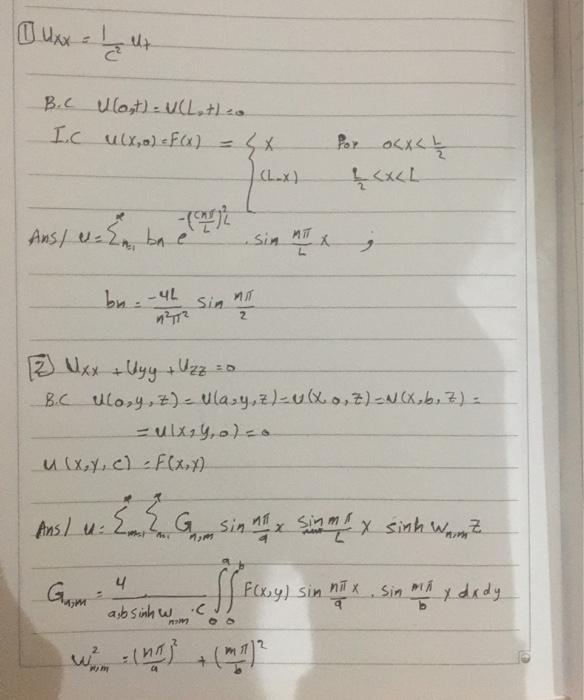 1 Uxx = 1/c² Ut
B.C U(0,t) = U(L,t) = 0
I.C u(x,0) = F(x) = { x For 0<x<L/2
(L-x) L/2 <x<L
Ans/ u = Σ_{n=1}^∞ bn e^{-(cnπ/L)² t} . sin nπ/L x ;
bn = -4L/n²π² sin nπ/2
2 Uxx + Uyy + Uzz = 0
B.C U(0,y,z) = U(a,y,z) = U(x,0,z) = U(x,b,z) =
= u(x,y,0) = 0
u(x,y,c) = F(x,y)
Ans/ u = Σ_{m=1}^∞ Σ_{n=1}^∞ G_{n,m} sin nπ/a x sin mπ/L y sinh W_{n,m} z
G_{n,m} = 4/(a,b sinh w_{n,m}.c) ∫_0^a ∫_0^b F(x,y) sin nπ/a x . sin mπ/b y dx dy
W²_{n,m} = (nπ/a)² + (mπ/b)²